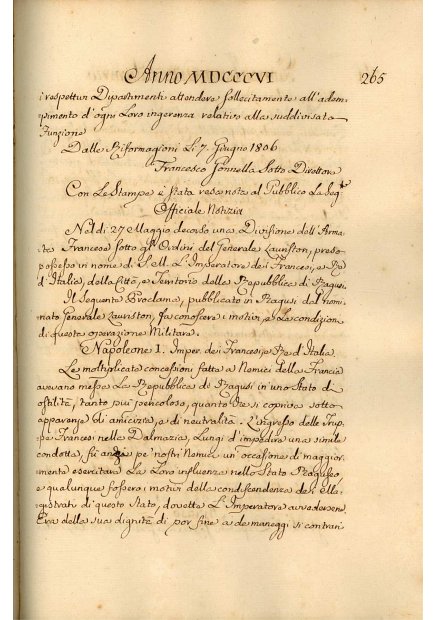 Anno MDCCCVI 265
i respettivi Dipartimenti attendere sollecitamente all'adem-
pimento d'ogni Loro ingerenza relativa alla suddivisata
Funzione
Dalle Riformagioni Li 7. Giugno 1806
Francesco Gonnella Sotto Direttore
Con Le Stampe è stata resa nota al Pubblico La seg.te
Officiale Notizia
Nel dì 27 Maggio decorso una Divisione dell'Arma-
ta Francese sotto gli Ordini del Generale Lauriston, prese
possesso in nome di S. M. L'Imperatore dei Francesi, e Re
d'Italia, della Città, e Territorio della Repubblica di Ragusi.
Il seguente Proclama, pubblicato in Ragusi dal nomi-
nato Generale Lauriston, fa conoscere i motivi, e Le condizioni
di questa operazione Militare.
Napoleone I. Imper. dei Francesi, e Re d'Italia.
Le moltiplicate concessioni fatte a Nemici della Francia
avevano messo La Repubblica di Ragusi in uno stato di
ostilità, tanto più pericoloso, quanto che si copriva sotto
apparenze di amicizia, e di neutralità. L'ingresso delle Trup-
pe Francesi nella Dalmazia, Lungi d'impedire una simile
condotta, fù anzi pe' nostri Nemici un'occasione di maggior-
mente esercitare La Loro influenza nello Stato Raguseo,
e qualunque fossero i motivi della condiscendenza dei Ma-
gistrati di questo Stato, dovette L'Imperatore avvedersene.
Era della sua dignità di por fine a de maneggi si contrari